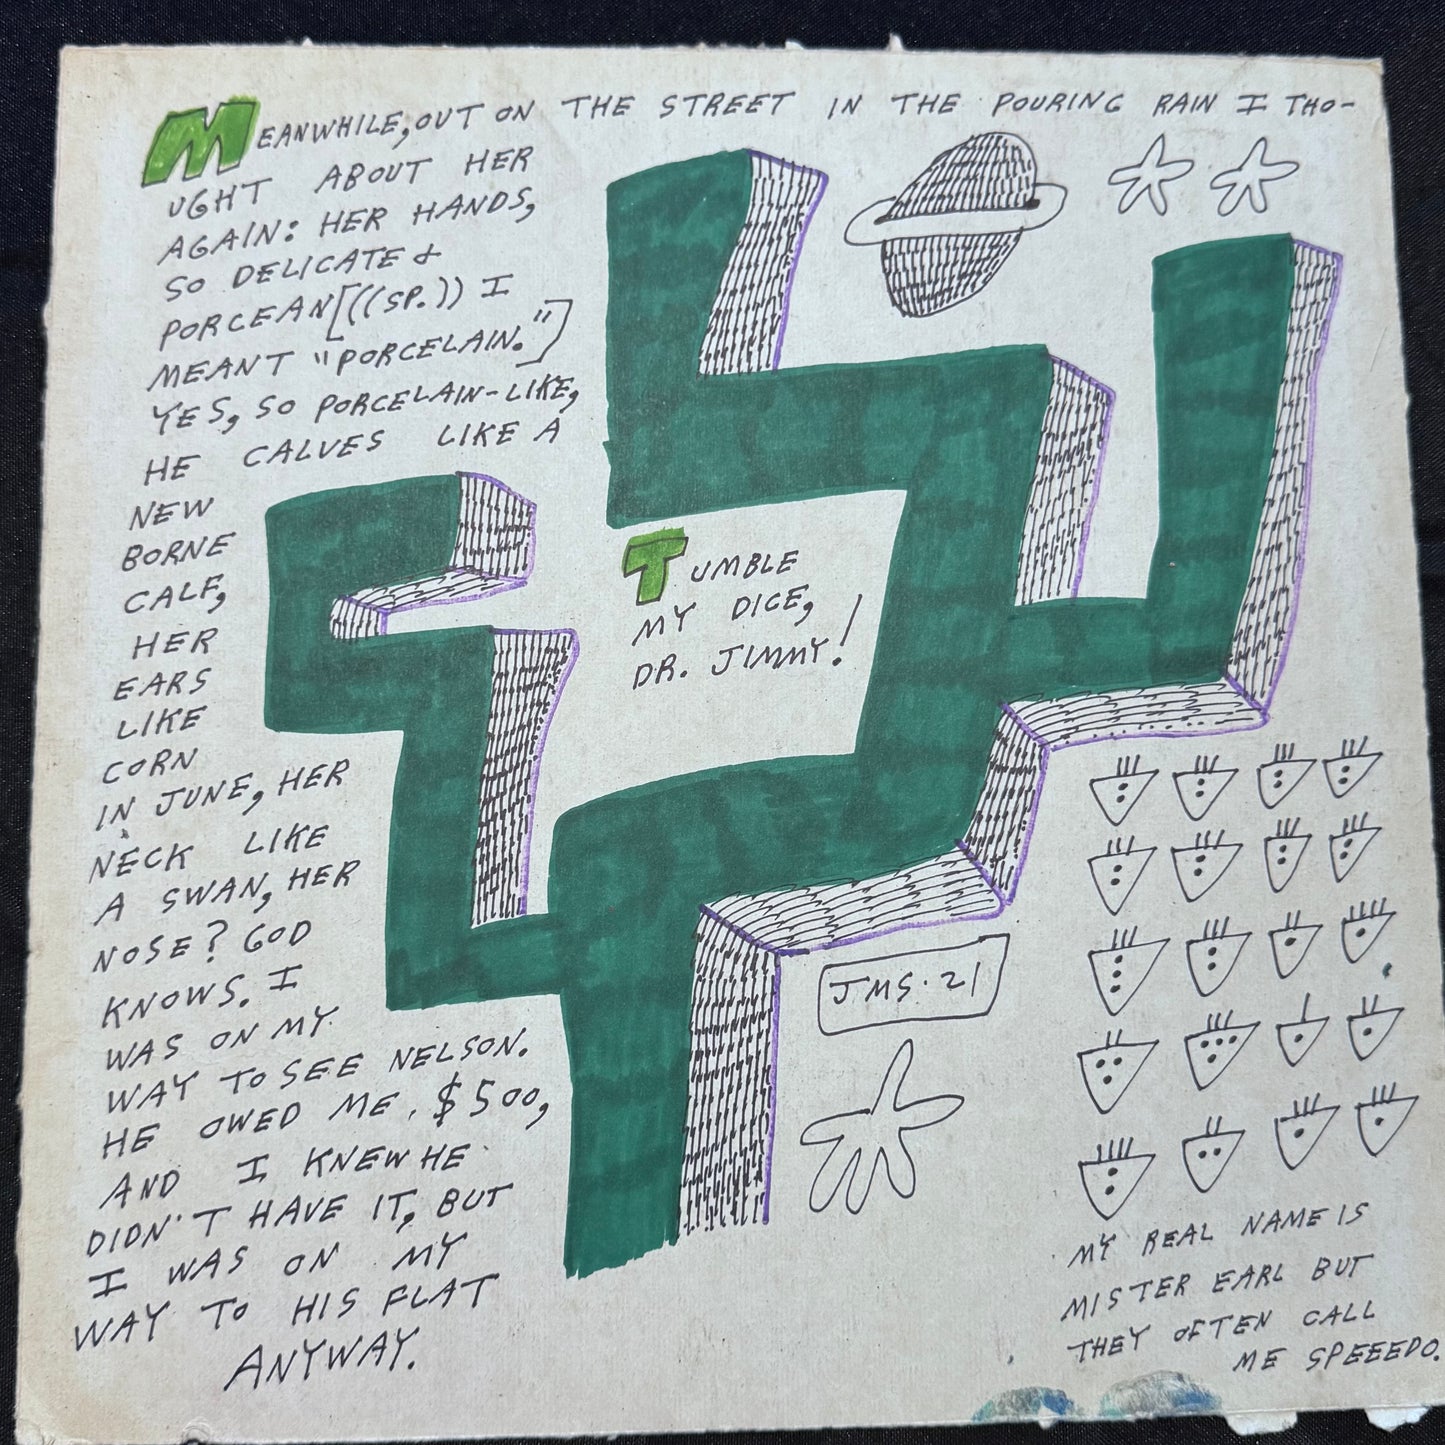 MEANWHILE, OUT ON THE STREET IN THE POURING RAIN I THO-
UGHT ABOUT HER
AGAIN: HER HANDS,
SO DELICATE &
PORCEAN[((SP.)) I
MEANT "PORCELAIN."]
YES, SO PORCELAIN-LIKE,
HE CALVES LIKE A
NEW
BORNE
CALF,
HER
EARS
LIKE
CORN
IN JUNE, HER
NECK LIKE
A SWAN, HER
NOSE? GOD
KNOWS. I
WAS ON MY
WAY TO SEE NELSON.
HE OWED ME $500,
AND I KNEW HE
DIDN'T HAVE IT, BUT
I WAS ON MY
WAY TO HIS FLAT
ANYWAY.
TUMBLE
MY DICE,
DR. JIMMY!
JMS·21
MY REAL NAME IS
MISTER EARL BUT
THEY OFTEN CALL
ME SPEEEDO.